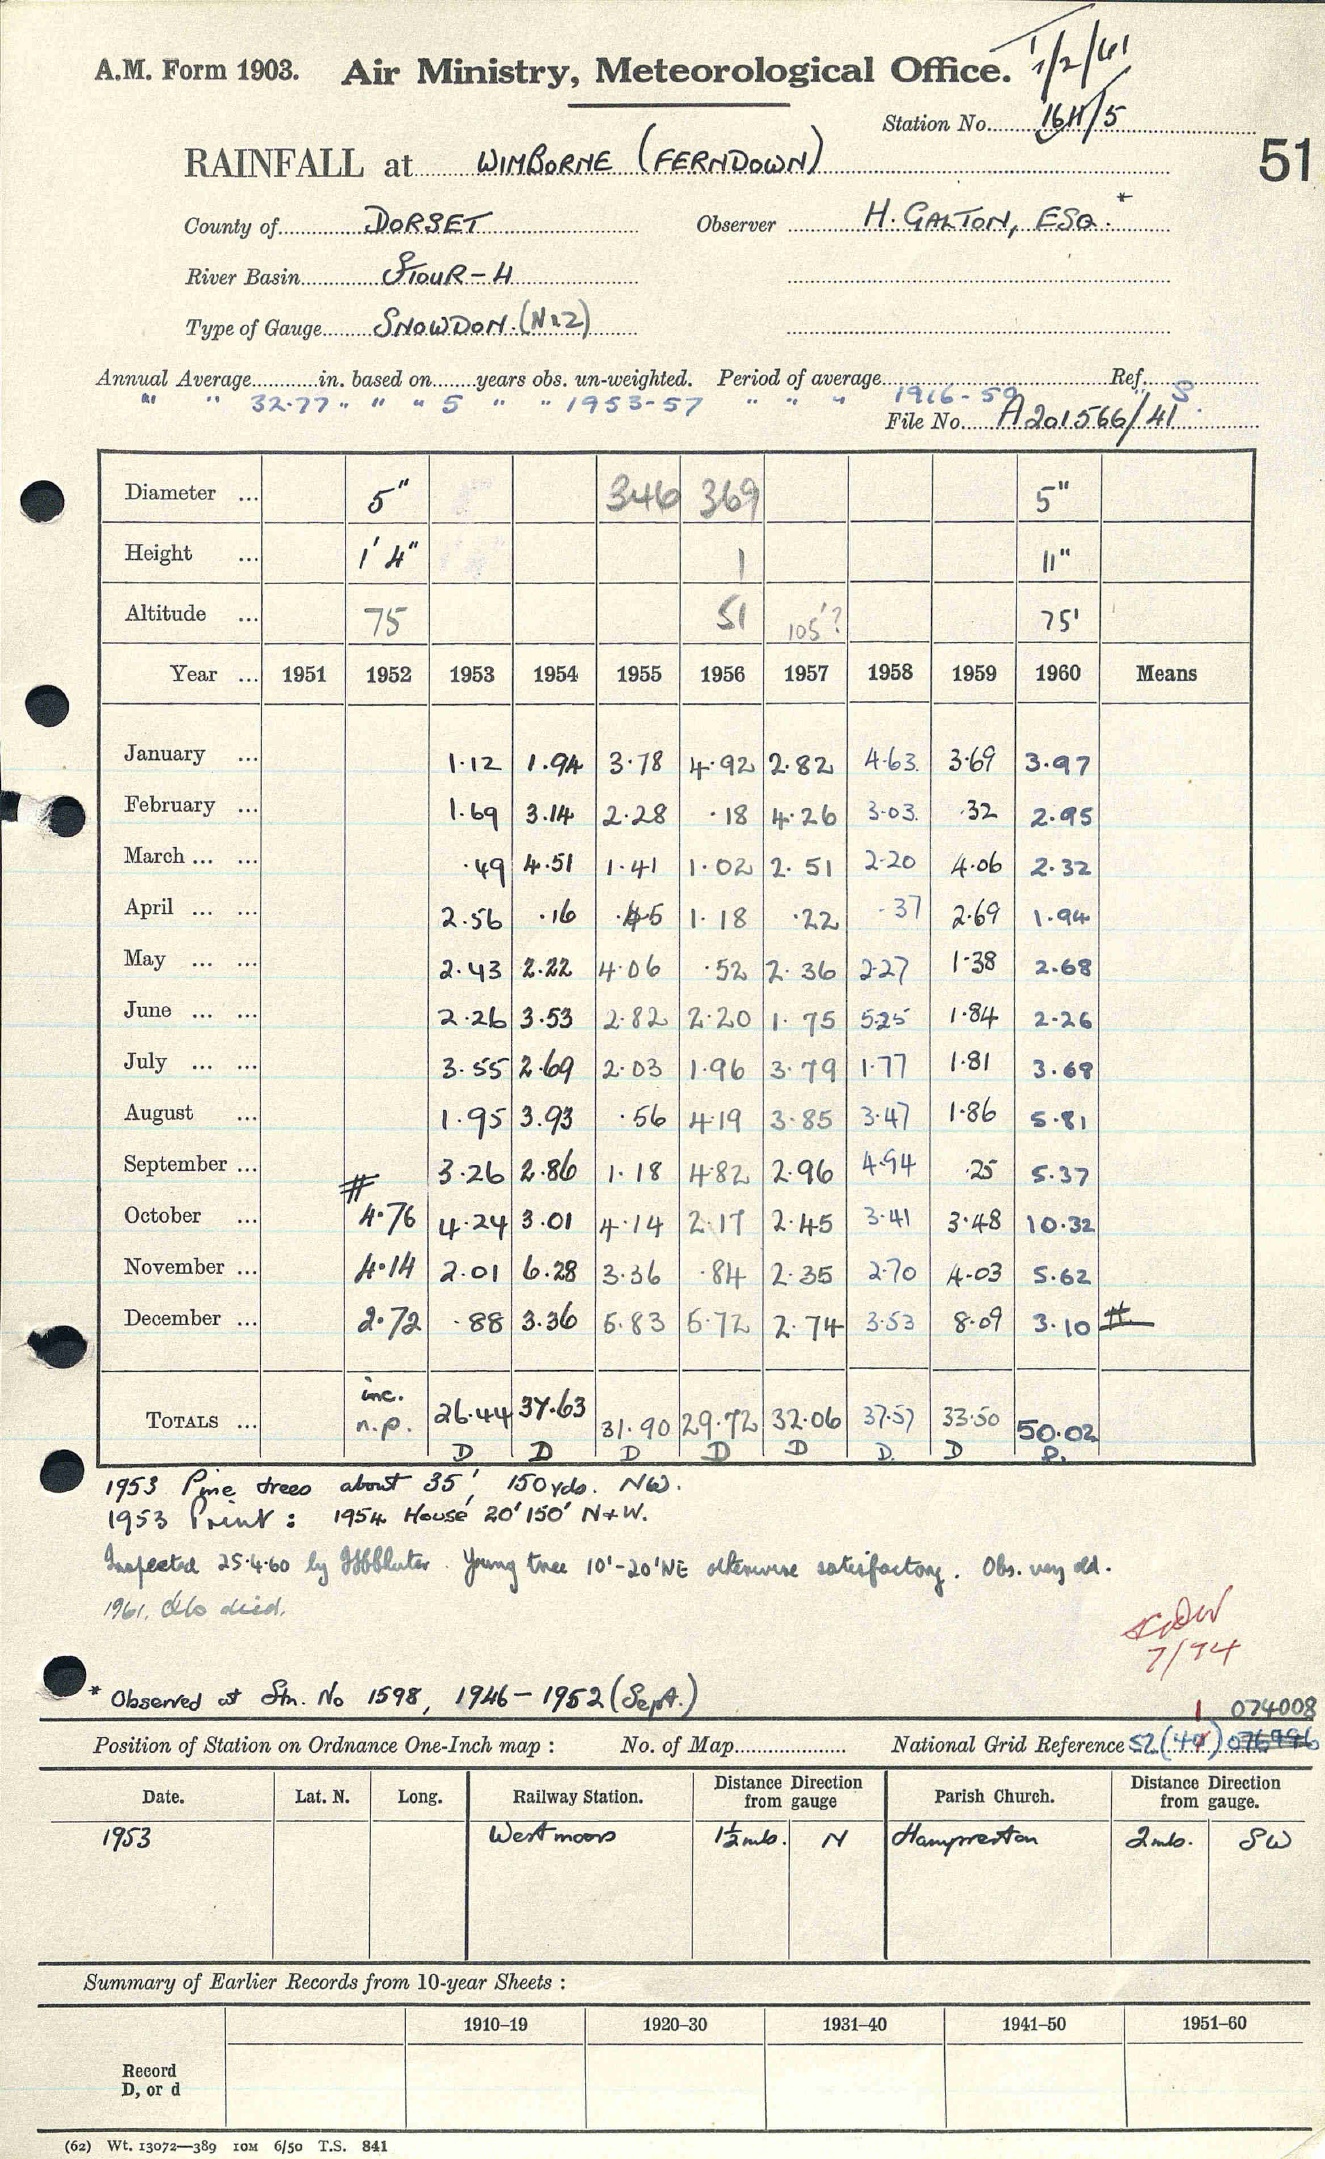 A.M. Form 1903. Air Ministry, Meteorological Office. 1/2/61
Station No. 16H/5
RAINFALL at WIMBORNE (FERNDOWN)
51
County of DORSET Observer H. GALTON, ESQ. *
River Basin STOUR-H
Type of Gauge SNOWDON.
Annual Average in. based on years obs. un-weighted. Period of average 1916-50 Ref. S.
" " 32.77 " " " 5 " " 1953-57 " " "
File No. A201566/41
Diameter ... 5" 346 369 5"
Height ... 1' 4" 1 11"
Altitude ... 75 51 105'? 75'
Year ... 1951 1952 1953 1954 1955 1956 1957 1958 1959 1960 Means
January ... 1.12 1.94 3.78 4.92 2.82 4.63 3.69 3.97
February ... 1.69 3.14 2.28 .18 4.26 3.03 .32 2.95
March ... ... .49 4.51 1.41 1.02 2.51 2.20 4.06 2.32
April ... ... 2.56 .16 .45 1.18 .22 .37 2.69 1.94
May ... ... 2.43 2.22 4.06 .52 2.36 2.27 1.38 2.68
June ... ... 2.26 3.53 2.82 2.20 1.75 5.25 1.84 2.26
July ... ... 3.55 2.69 2.03 1.96 3.79 1.77 1.81 3.68
August ... 1.95 3.93 .56 4.19 3.85 3.47 1.86 5.81
September ... # 3.26 2.86 1.18 4.82 2.96 4.94 .25 5.37
October ... 4.76 4.24 3.01 4.14 2.17 2.45 3.41 3.48 10.32
November ... 4.14 2.01 6.28 3.36 .84 2.35 2.70 4.03 5.62
December ... 2.72 .88 3.36 5.83 5.72 2.74 3.53 8.09 3.10 #
TOTALS ... inc. n.p. 26.44 37.63 31.90 29.72 32.06 37.57 33.50 50.02
D D D D D D. D
1953 Pine trees about 35', 150yds. NW.
1953 Print: 1954 House 20' 150' N+W.
Inspected 25.4.60 by Young tree 10'-20'NE otherwise satisfactory. Obs. very old.
1961. Obs died.
7/74
* Observed at Stn. No 1598, 1946-1952 (Sept.)
1 074008
Position of Station on Ordnance One-Inch map : No. of Map National Grid Reference SZ (40) 076996
Date. Lat. N. Long. Railway Station. Distance Direction from gauge Parish Church. Distance Direction from gauge.
1953 Westmoors 1½ mls. N Hampreston 2 mls. SW
Summary of Earlier Records from 10-year Sheets :
1910-19 1920-30 1931-40 1941-50 1951-60
Record
D, or d
(62) Wt. 13072—389 10M 6/50 T.S. 841